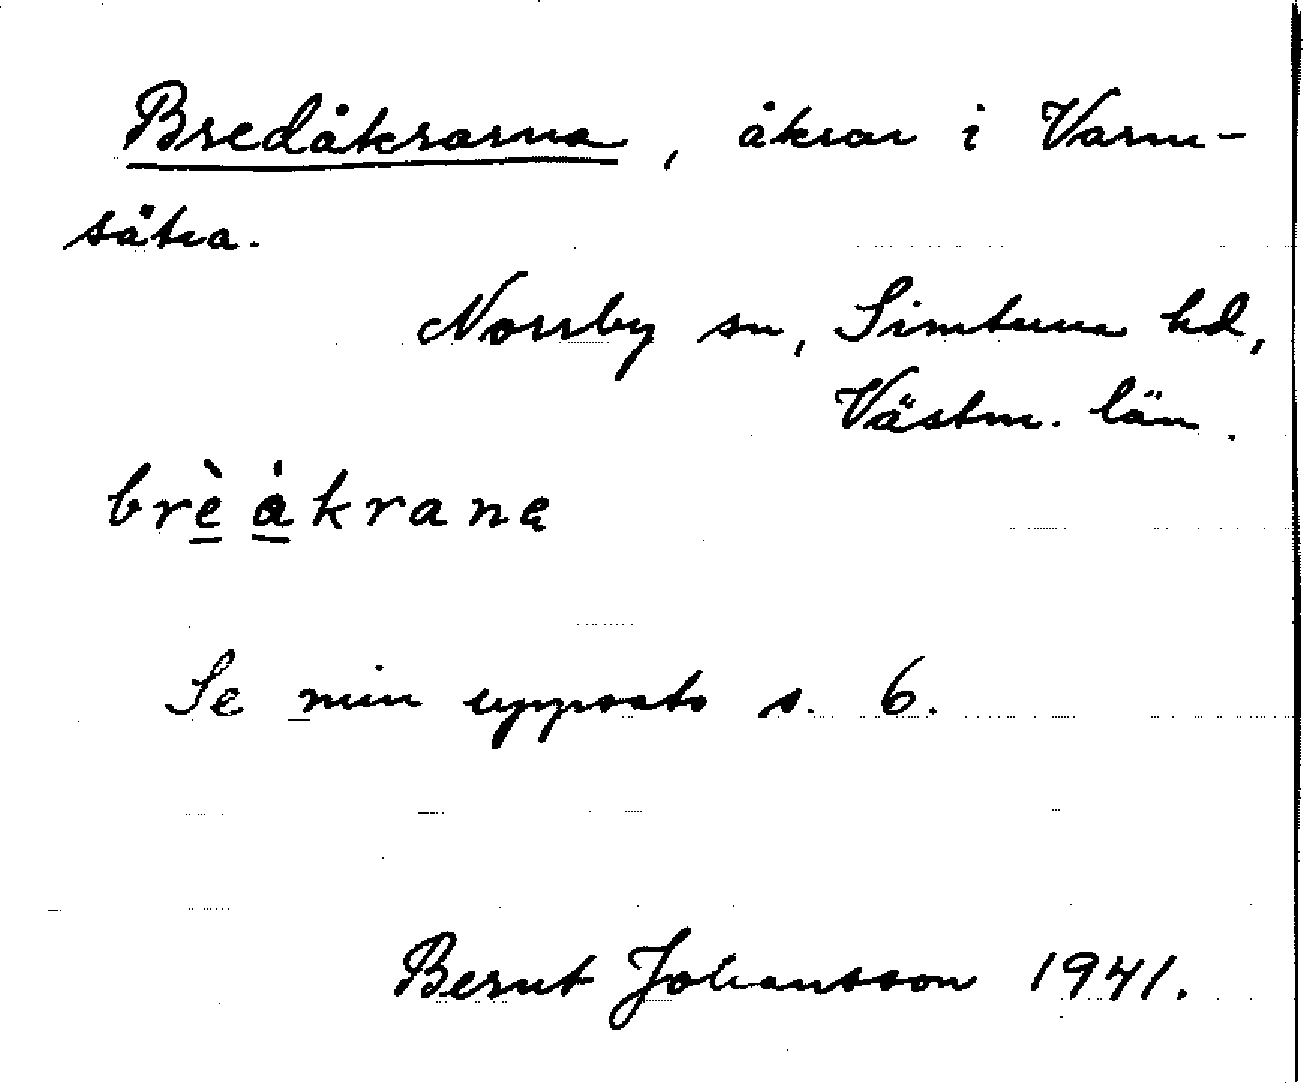 Bredåkrarna, åkrar i Varm-
sätra.
Norrby sn, Simtuna hd,
Västm. län.
brè̲ å̲kranę
Se min uppsats s. 6.
Bernt Johansson 1941.